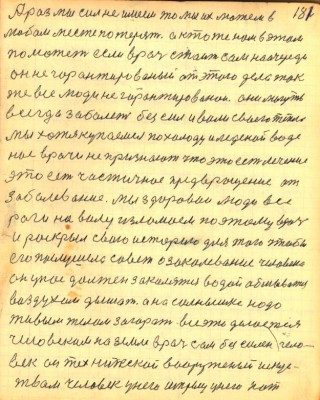 181
А раз мы сил не имеем то мы их можем в
любом месте потерят. а кто же нам в этом
поможет если врач стоит сам на очереди
он не гарантированый от этого дела так
же все люди не гарантированы. они могуть
всегда заболет без сил и воли своего тела
мы хотя купаемся по холоду и ледской воде
нас врачи не признают что это есть лечение
это есть частичное предверощение от
заболевание. мы здороваи люди все
роги на волу изломаем поэтому врач
и раскрыл свою историю для того чтобы
его совет о закалевание человека
он у нас должен закалятся водой обтиватся
воздухом дышат. а на солнышке надо
живым телом загорат все это делается
человеком на земле врач сам бы силен чело-
век он технической вооруженый искус-
твам человек у него шприц у него нож